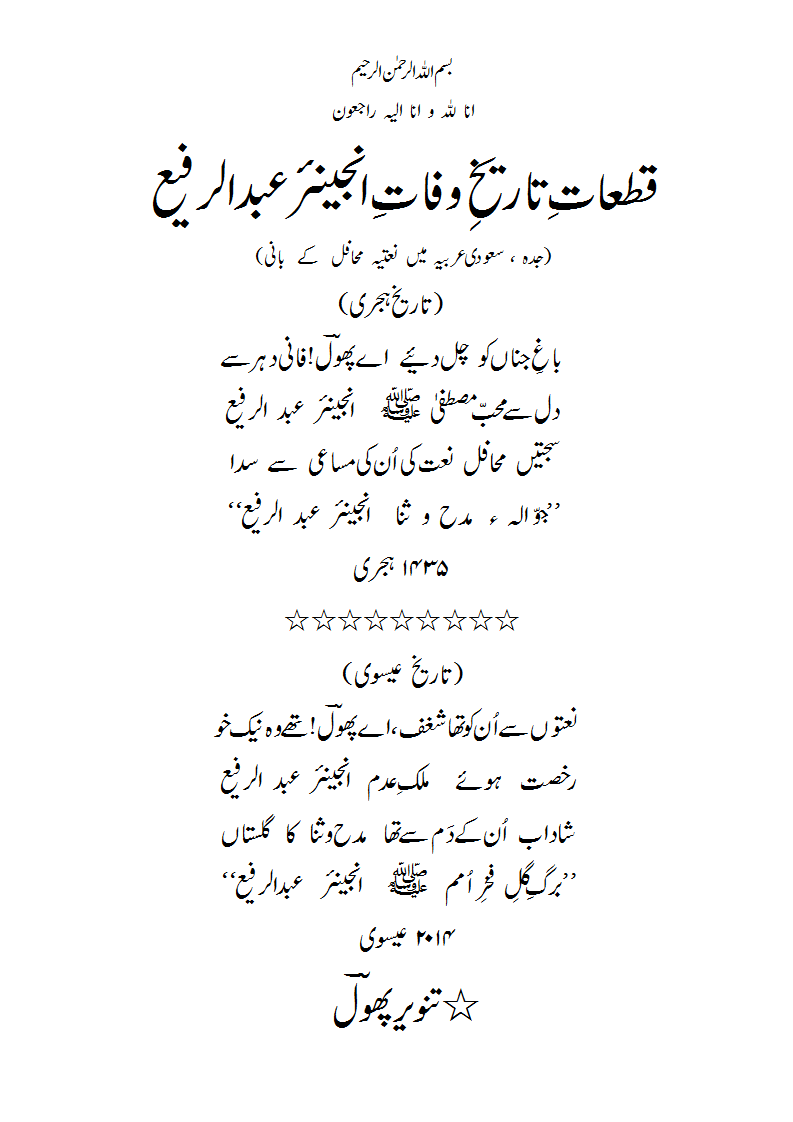 بسم اللہ الرحمٰن الرحیم
انا للہ و انا الیہ راجعون
قطعاتِ تاریخِ وفاتِ انجینئر عبدالرفیع
(جدہ ، سعودی عربیہ میں نعتیہ محافل کے بانی)
(تاریخ ہجری)
باغِ جناں کو چل دئیے اے پھولؔ! فانی دہر سے
دل سے محبِّ مصطفیٰ ﷺ انجینئر عبد الرفیع
سجتیں محافل نعت کی اُن کی مساعی سے سدا
’’جوّالہ ء مدح و ثنا انجینئر عبد الرفیع‘‘
۱۴۳۵ ہجری
☆☆☆☆☆☆☆☆☆
(تاریخ عیسوی)
نعتوں سے اُن کو تھا شغف، اے پھولؔ! تھے وہ نیک خو
رخصت ہوئے ملکِ عدم انجینئر عبد الرفیع
شاداب اُن کے دَم سے تھا مدح و ثنا کا گلستاں
’’برگِ گلِ فخرِ اُمم ﷺ انجینئر عبدالرفیع‘‘
۲۰۱۴ عیسوی
☆ تنویر پھولؔ